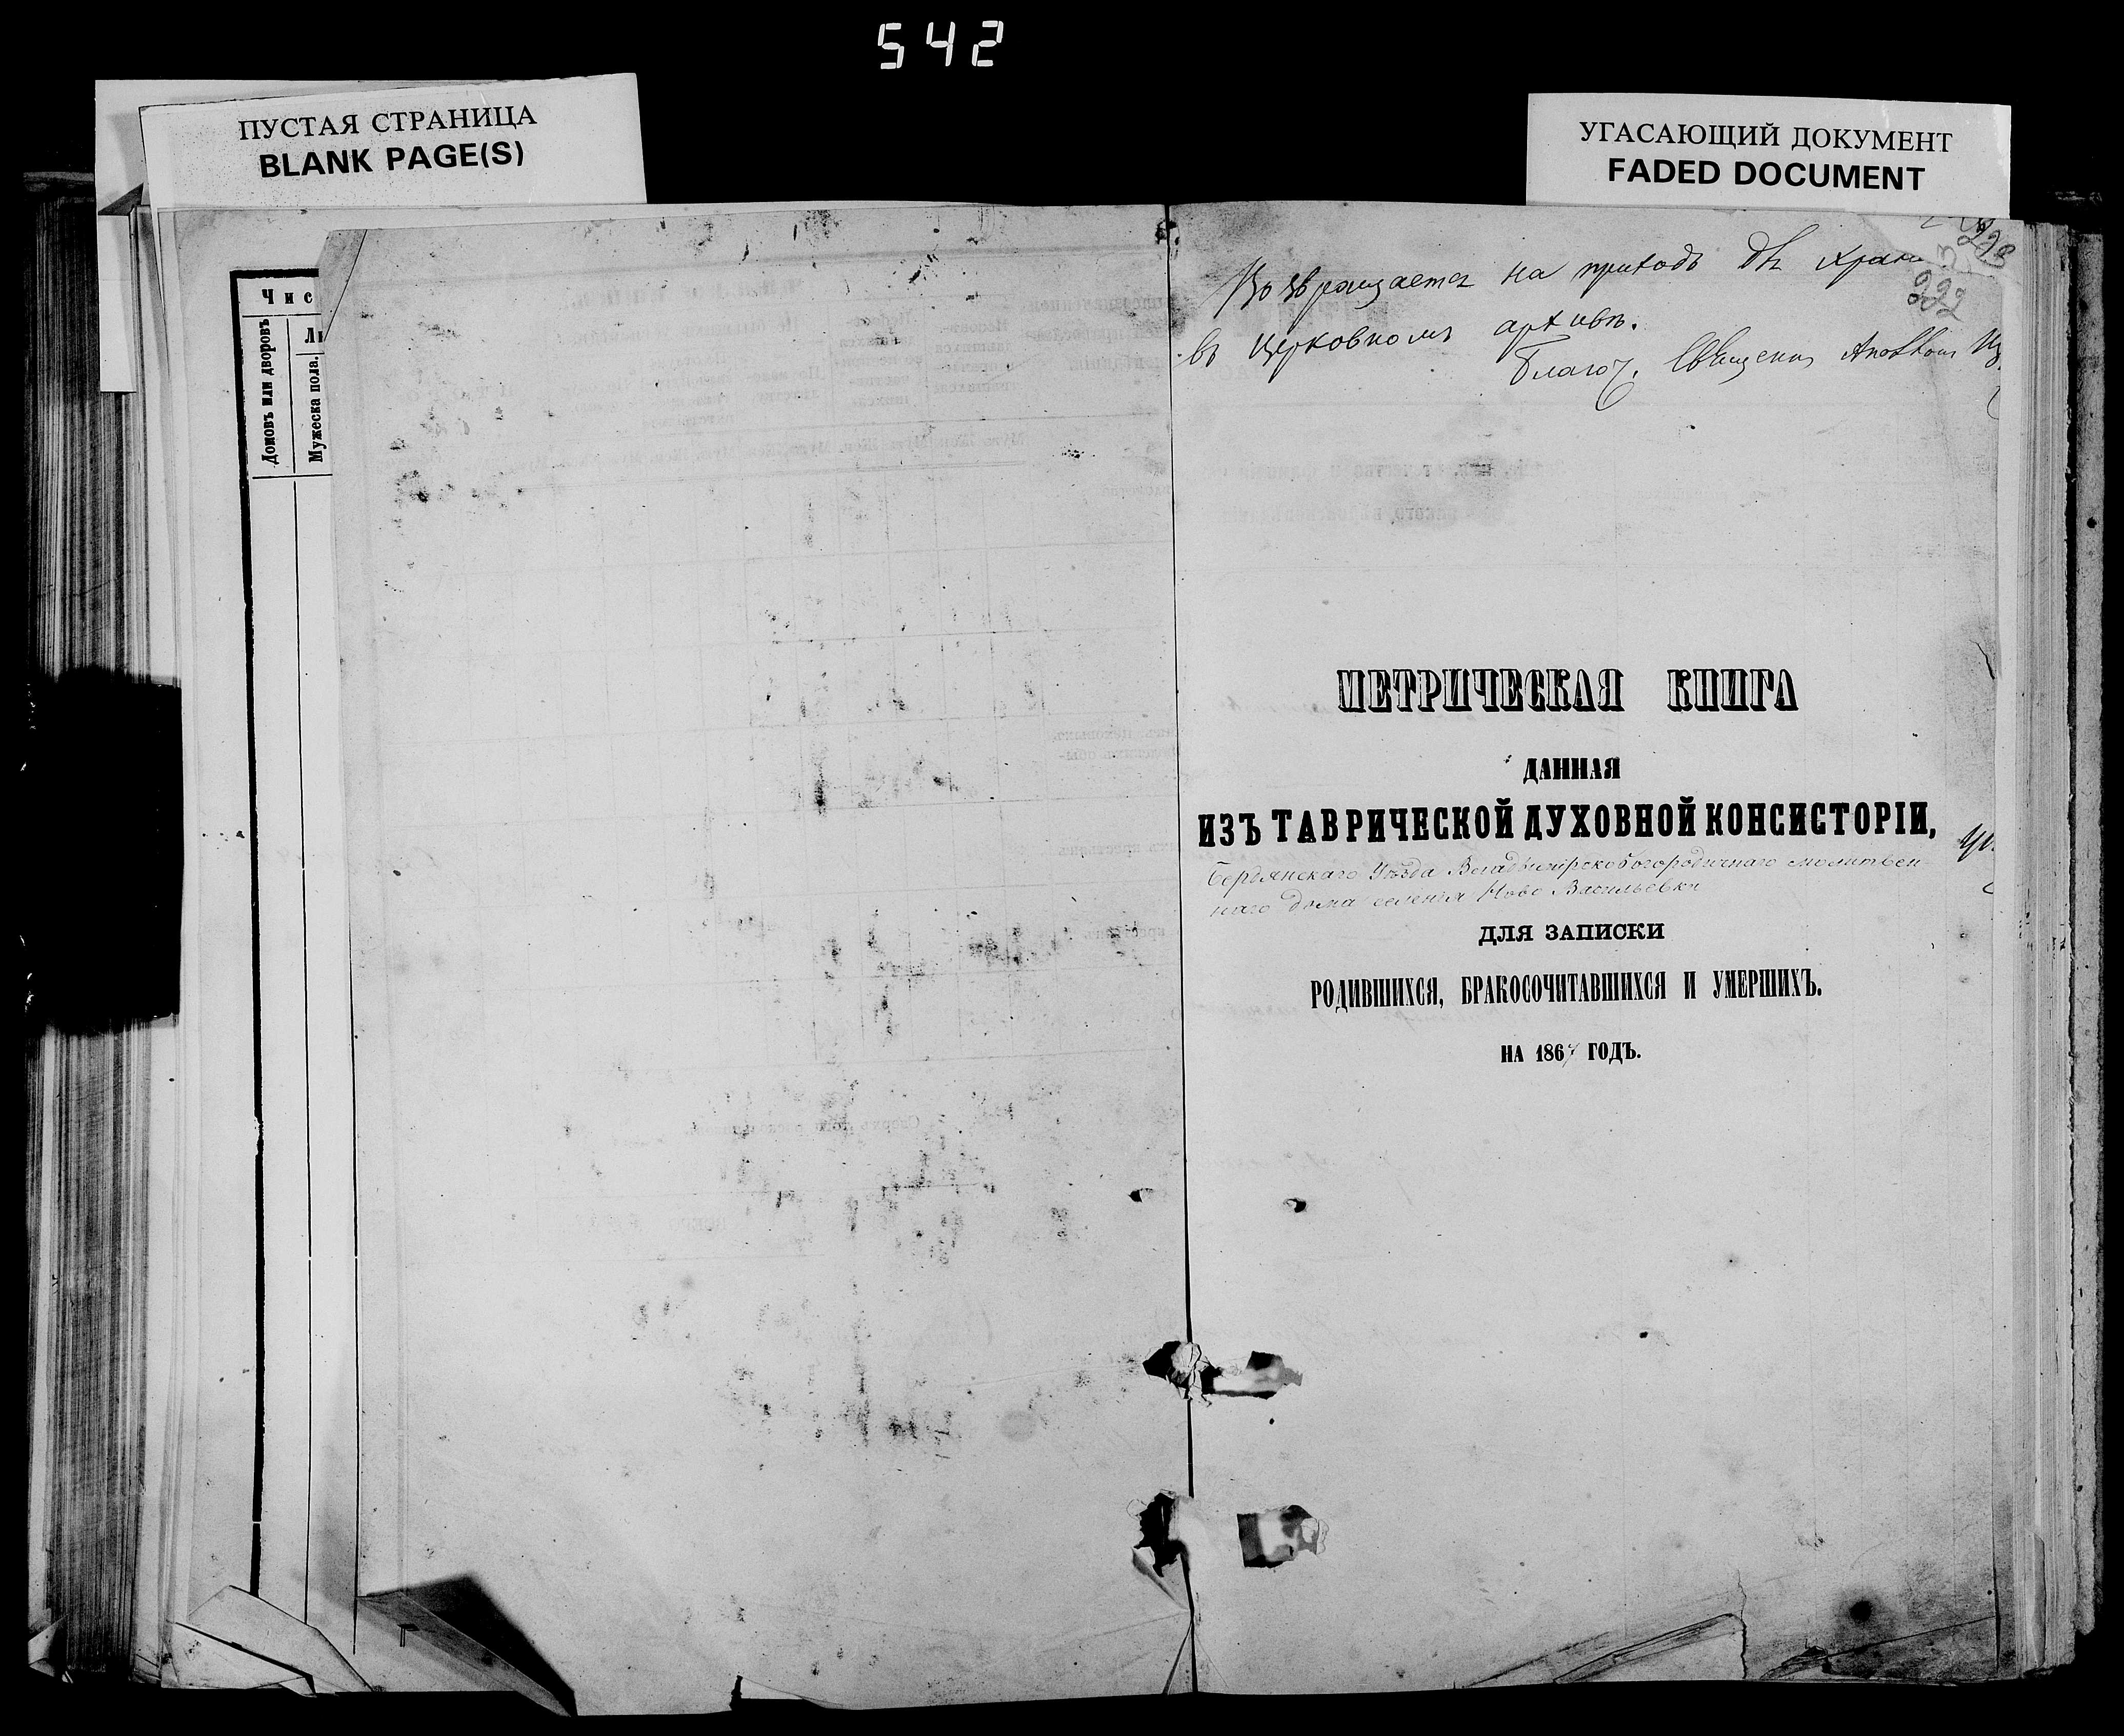 542
ПУСТАЯ СТРАНИЦА
BLANK PAGE(S)
УГАСАЮЩИЙ ДОКУМЕНТ
FADED DOCUMENT
Чис
Домовъ или дворовъ
Мужеска пола.
222
Возвращается на приходъ для хране
въ церковномъ архивѣ.
Благоч. Священ
МЕТРИЧЕСКАЯ КНИГА
ДАННАЯ
ИЗЪ ТАВРИЧЕСКОЙ ДУХОВНОЙ КОНСИСТОРІИ,
Бердянскаго Уѣзда Владимірскобогородичнаго молитвен
наго дома селенія Ново Васильевки
ДЛЯ ЗАПИСКИ
РОДИВШИХСЯ, БРАКОСОЧИТАВШИХСЯ И УМЕРШИХЪ.
НА 1867 ГОДЪ.